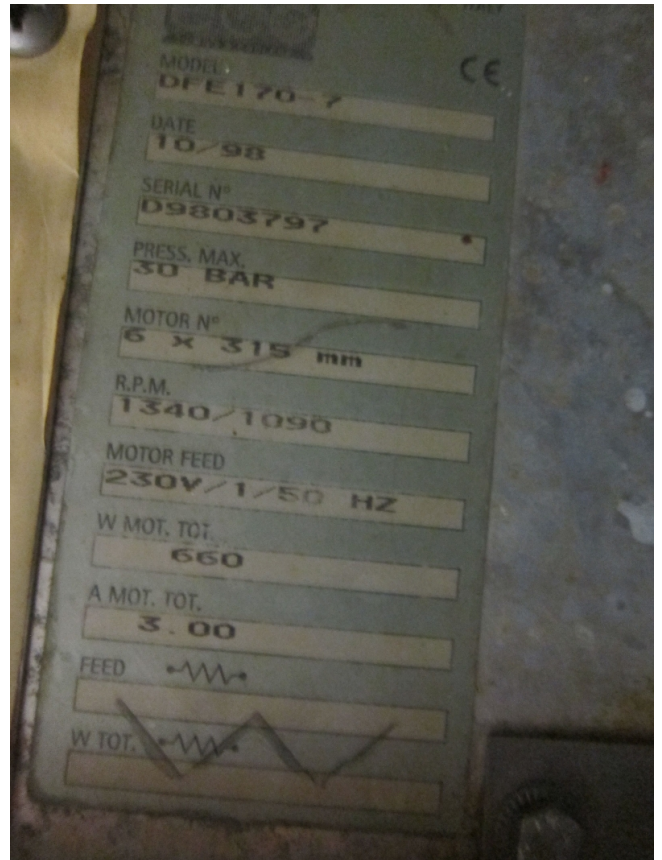 ITALY
CE
MODEL
DFE170-7
DATE
10/98
SERIAL Nº
D9803797
PRESS. MAX.
30 BAR
MOTOR Nº
6 x 315 mm
R.P.M.
1340/1090
MOTOR FEED
230V/1/50 HZ
W MOT. TOT.
660
A MOT. TOT.
3.00
FEED
W TOT.